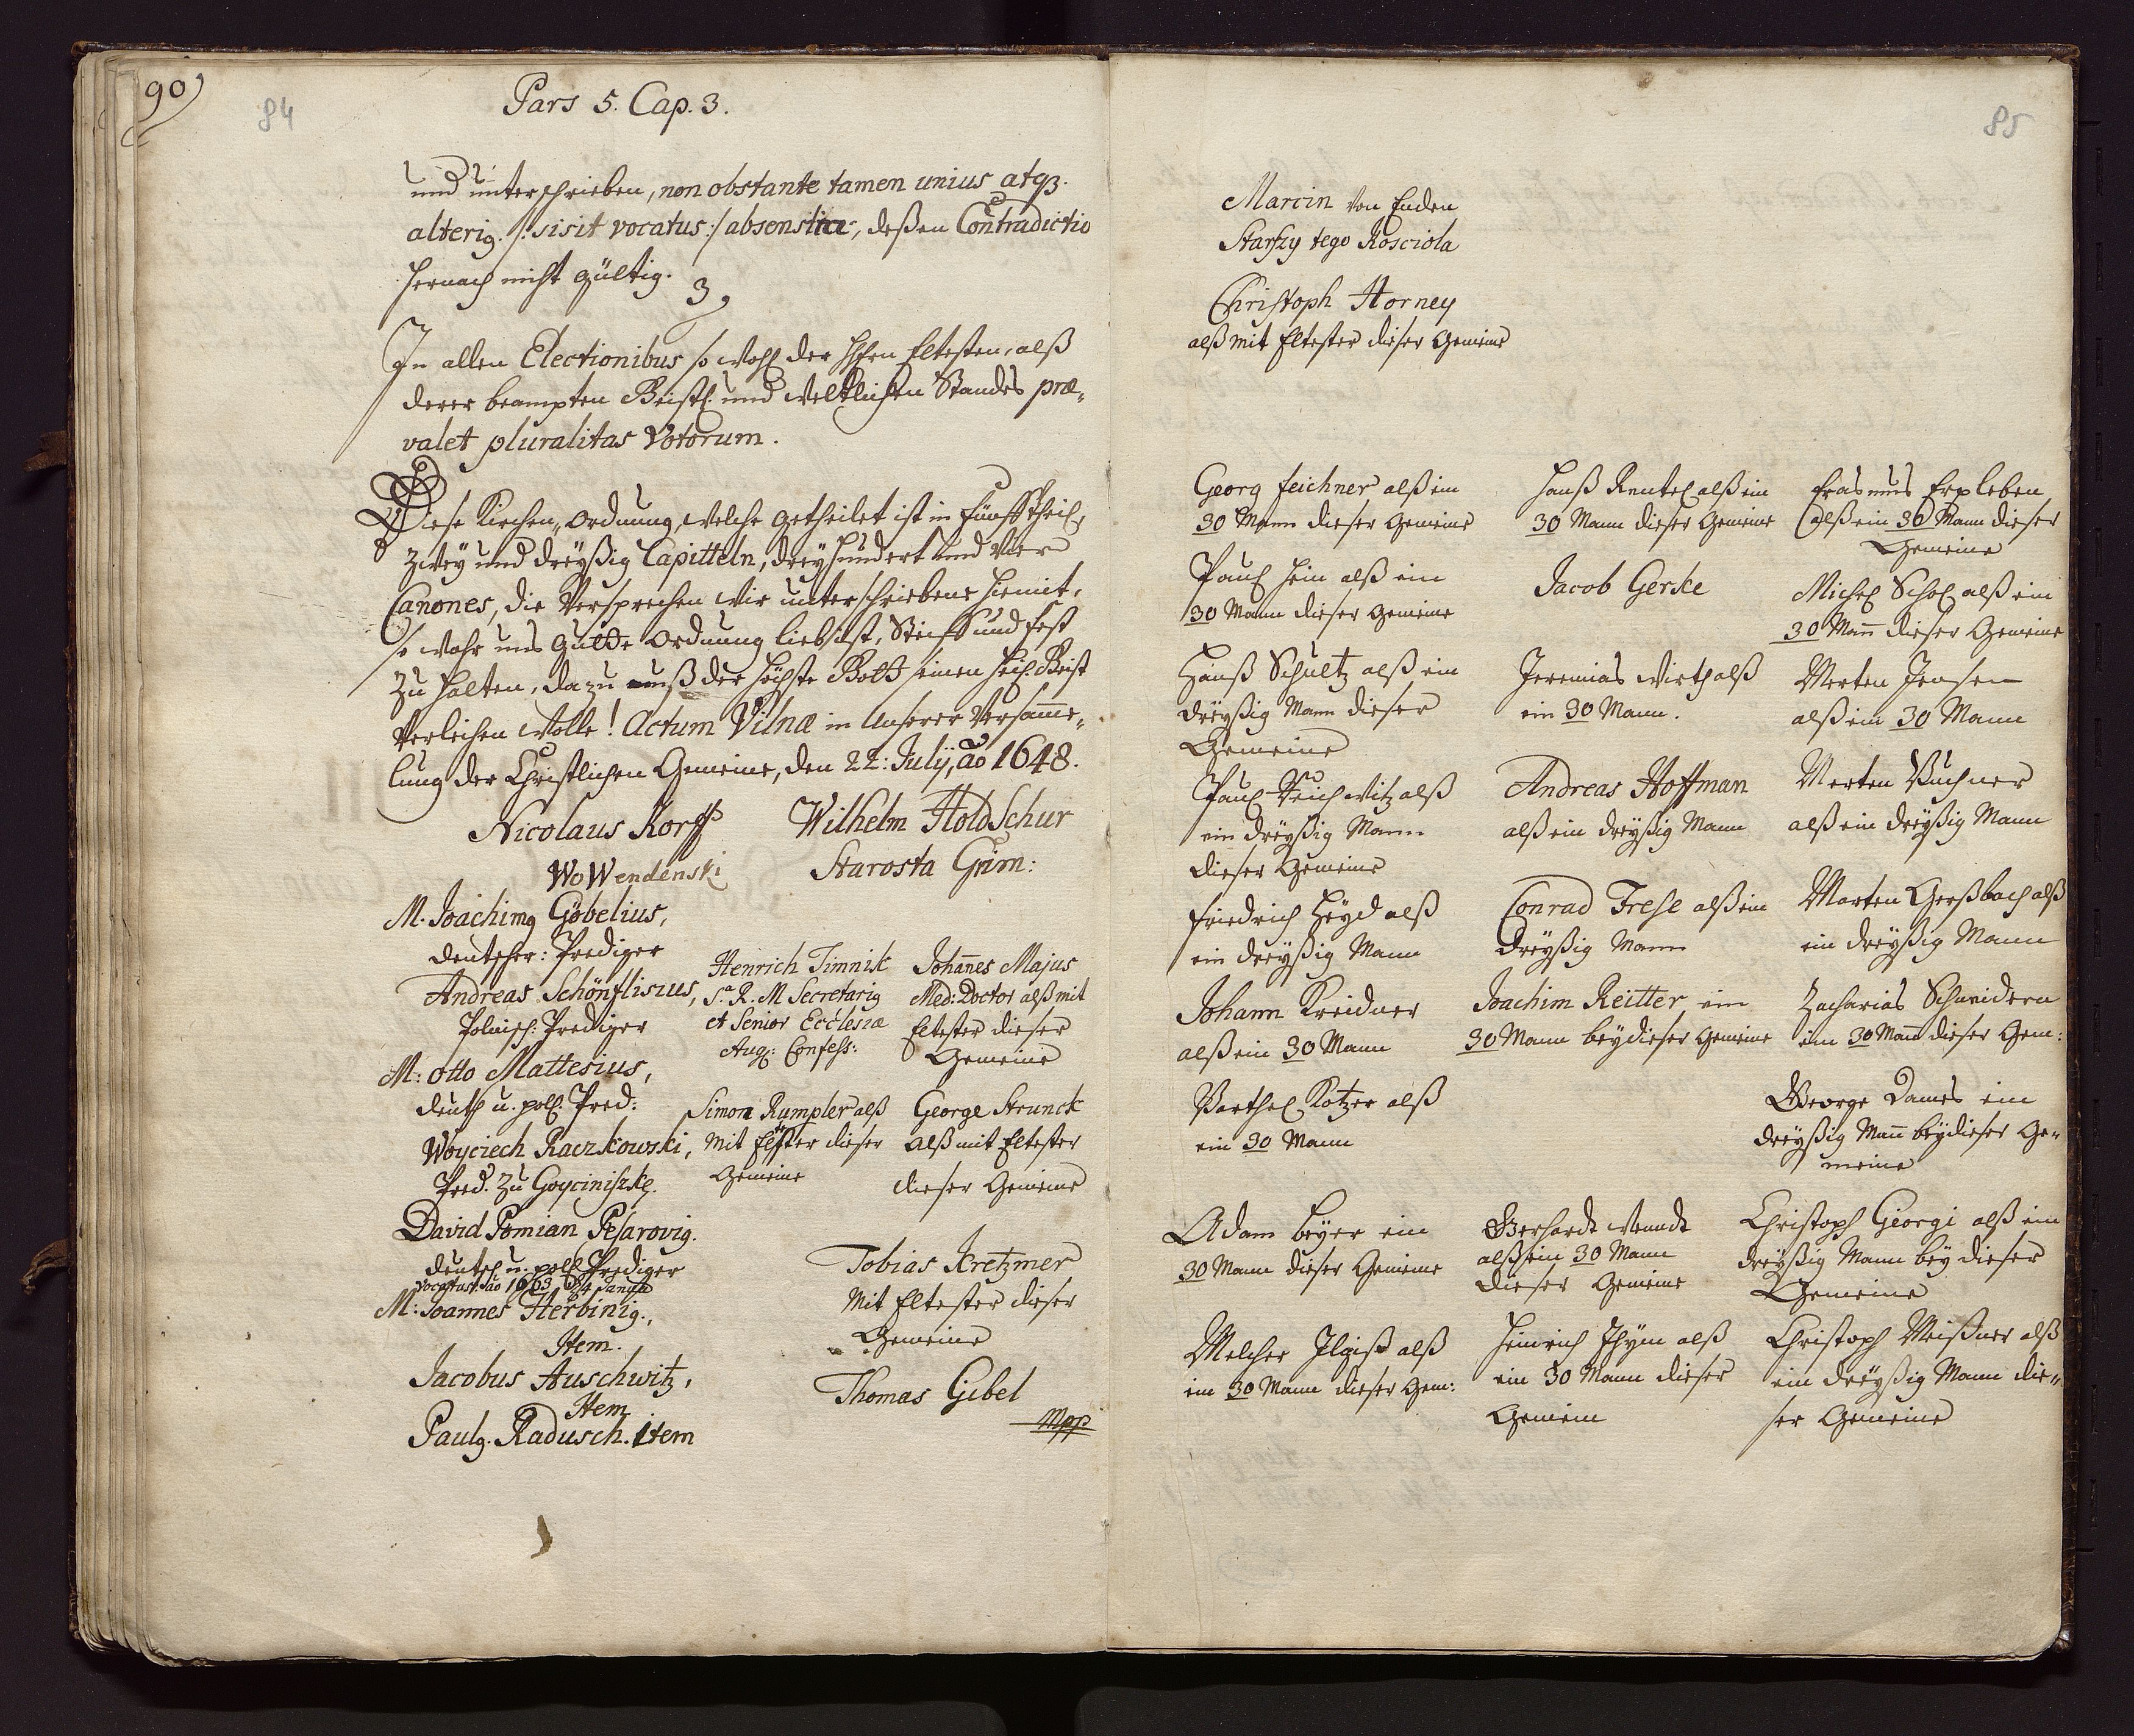 90)
84
Pars 5. Cap. 3.
und unterschrieben, non obstante tamen unius atq3.
alterig. /: si sit vocatus :/ absentia, deßen Contradictio
hernach nicht gültig.
3,
In allen Electionibus so wohl der HHrn Eltesten, alß
derer beampten Geistl. und Weltlichen Standes præ„
valet pluralitas Votorum.
Diese Kirchen„Ordnung, welche getheilet ist in fünff theil,
zwey und dreyßig Capitteln, dreyhundert und vier
Canones, die Versprechen wir unterschriebene hiemit,
so wahr uns gutte Ordnung lieb ist, Steiff und fest
zu halten, dazu unß der höchste Gott seinen heil. Geist
Verleihen Wolle! Actum Vilnæ in Unserer Versam̄e„
lung der Christlichen Gemeine, den 22: July, ao 1648.
Nicolaus Korff
Wo Wendenski
Wilhelm HoldSchur
Starosta Grim:
M. Joachimg Göbelius,
deutscher: Prediger
Andreas Schönflisius,
Polnisch: Prediger
M: Otto Mattesius,
deutsch u. poll. Pred:
Woyciech Raczkowski,
Pred. zu Goyciniszke.
David Pomian Pesarovig.
deutsch u. poll. Prediger
vocatus ao 1663
M: Joannes Herbinig.,
Item.
Jacobus Auschwitz,
Item
Paulg. Radusch. item
Henrich Timnik
S.a R. M Secretarig
et Senior Ecclesiæ
Aug: Confess:
Simon Rumpler alß
mit Eltster dieser
Gemeine
Johan̄es Majus
Med: Doctor alß mit
Eltester dieser
Gemeine
George Strunck
alß mit Eltester
dieser Gemeine
Tobias Kretzmer
Mit Eltester dieser
Gemeine
Thomas Gibel
Mpp
85
Marcin von Enden
Starszy tego Kosciola
Christoph Horney
alß mit Eltester dieser Gemeine
Georg Feichner alß ein
30 Mann dieser Gemeine
Paul Hein alß ein
30 Mann dieser Gemeine
Hanß Schultz alß ein
dreyßig Mann dieser
Gemeine
Paul Teichwitz alß
ein dreyßig Mann
dieser Gemeine
Friedrich Heyd alß
ein dreyßig Mann
Johann Kreidner
alß ein 30 Mann
Barthel Kotzer alß
ein 30 Mann
Adam beyer ein
30 Mann dieser Gemeine
Melcher Ilgiß alß
ein 30 Mann dieser Gem:
Hanß Rentel alß ein
30 Mann dieser Gemeine
Jacob Gerske
Jeremias Wirth alß
ein 30 Mann.
Andreas Hoffman
alß ein dreyßig Mann
Conrad Frese alß ein
dreyßig Mann
Joachim Reitter ein
30 Mann bey dieser Gemeine
Gerhardt Wendt
alß ein 30 Mann
dieser Gemeine
Heinrich Thym alß
ein 30 Mann dieser
Gemein
Erasmus Erxleben
alß ein 30 Mann dieser
Gemeine
Michel Schol alß ein
30 Man̄ dieser Gemeine
Merten Jensen
alß ein 30 Mann
Merten Buchner
alß ein dreyßig Mann
Marten Gerßbach alß
ein dreyßig Mann
Zacharias Schneidern
ein 30 Man̄ dieser Gem:
George Dames ein
dreyßig Man̄ bey dieser Ge„
meine
Christoph Georgi alß ein
dreyßig Mann bey dieser
Gemeine
Christoph Meißner alß
ein dreyßig Mann die„
ser Gemeine